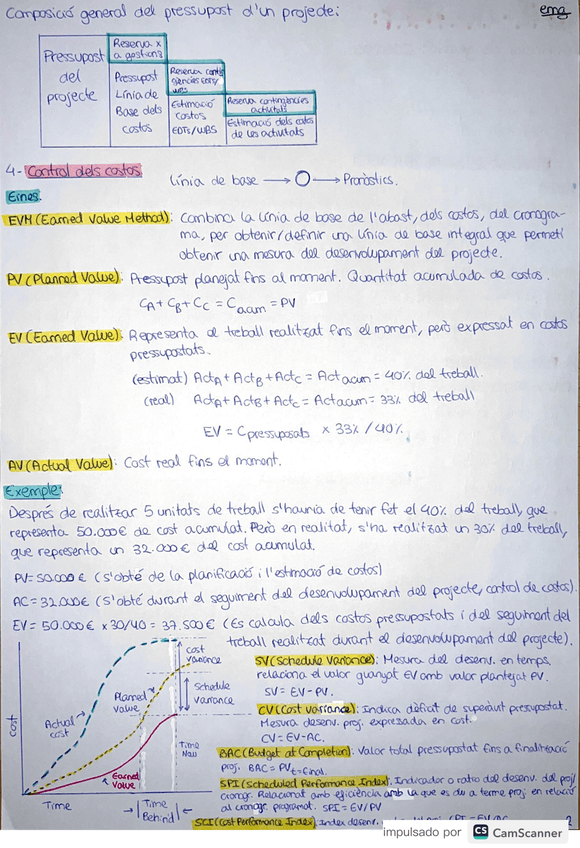 Composició general del pressupost d'un projecte:
emg
Pressupost del projecte
Reserva x a gestions
Pressupost Línia de Base dels costos
Reserva contingències EDTs/WPs
Estimació costos EDTs/WBS
Reserva contingències activitats
Estimació dels costos de les activitats
4- Control dels costos.
Línia de base → O → Pronòstics.
Eines.
EVM (Earned Value Method): Combina la línia de base de l'abast, dels costos, del cronogra-
ma, per obtenir/definir una línia de base integral que permeti
obtenir una mesura del desenvolupament del projecte.
PV (Planned Value): Pressupost planejat fins al moment. Quantitat acumulada de costos.
CA + CB + CC = Cacum = PV
EV (Earned Value): Representa el treball realitzat fins el moment, però expressat en costos
pressupostats.
(estimat) ActA + ActB + ActC = Actacum = 40% del treball.
(real) ActA + ActB + ActC = Actacum = 33% del treball
EV = Cpressuposats x 33% / 40%
AV (Actual Value): Cost real fins el moment.
Exemple:
Després de realitzar 5 unitats de treball s'hauria de tenir fet el 40% del treball, que
representa 50.000€ de cost acumulat. Però en realitat, s'ha realitzat un 30% del treball,
que representa un 32.000€ del cost acumulat.
PV = 50.000€ (s'obté de la planificació i l'estimació de costos)
AC = 32.000€ (s'obté durant el seguiment del desenvolupament del projecte, control de costos).
EV = 50.000€ x 30/40 = 37.500€ (Es calcula dels costos pressupostats i del seguiment del
treball realitzat durant el desenvolupament del projecte).
Cost
Actual cost
Planned value
Earned Value
Cost Variance
Schedule Variance
Time Now
Time
Time Behind
SV (Schedule Variance): Mesura del desenv. en temps,
relaciona el valor guanyat EV amb valor plantejat PV.
SV = EV - PV.
CV (Cost variance): Indica dèficit de superàvit pressupostat.
Mesura desenv. proj. expressada en cost.
CV = EV - AC.
BAC (Budget at Completion): Valor total pressupostat fins a finalització
proj. BAC = PV t=final.
SPI (Scheduled Performance Index). Indicador o ratio del desenv. del proj/
cronogr. Relacionat amb eficiència amb la que es du a terme proj en relació
al cronogr. programat. SPI = EV/PV
SCI (Cost Performance Index). Index desenv.
2
impulsado por CS CamScanner